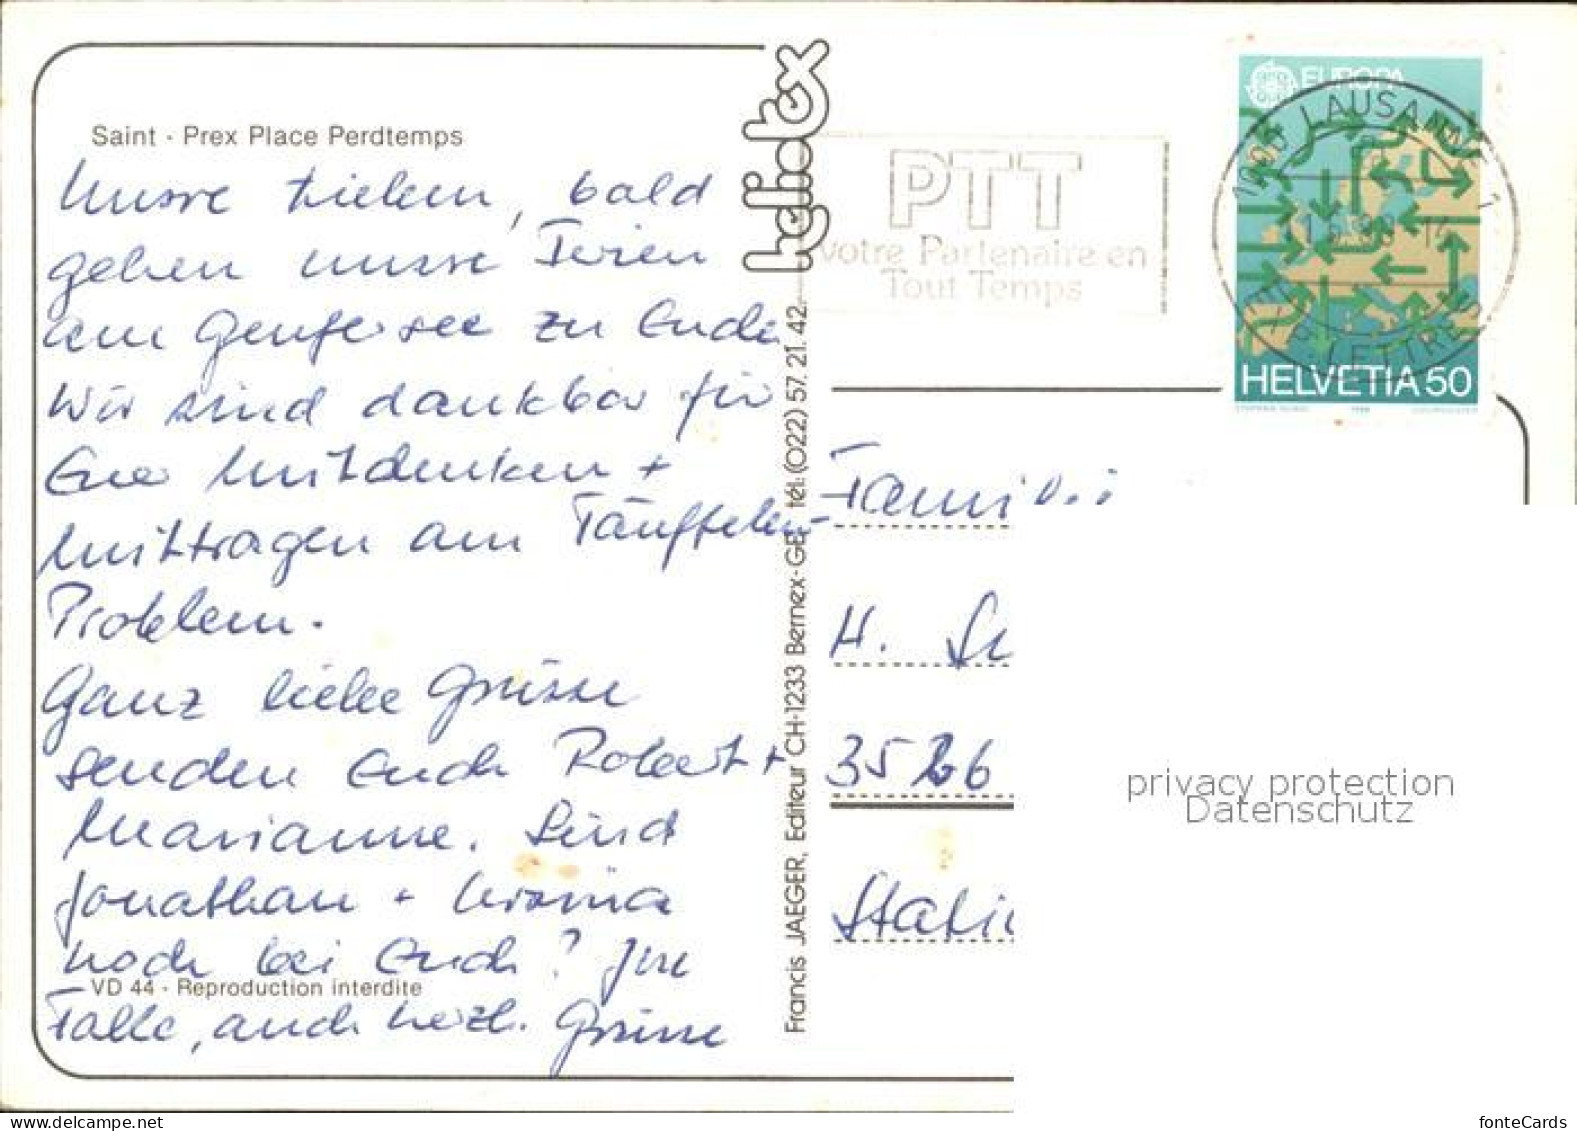 Saint - Prex Place Perdtemps
Unsre Lieben, bald
gehen unsre Ferien
am Genfersee zu Ende
Wir sind dankbar für
Euer Mitdenken +
Mittragen am Täuffelen-
Problem.
Ganz liebe Grüsse
senden Euch Robert +
Marianne. Sind
Jonathan +
noch bei Euch? Im
VD 44 - Reproduction interdite
Falle, auch herzl. Grüsse
heliotex
Francis JAEGER, Editeur CH-1233 Bernex-GE tél. (022) 57. 21. 42.
PTT
Votre Partenaire en
Tout Temps
EUROPA
1000 LAUSANNE 1
EXP. LETTRES
HELVETIA 50
1988
Familie
H.
3526
Stati
privacy protection
Datenschutz
www.delcampe.net
fonteCards